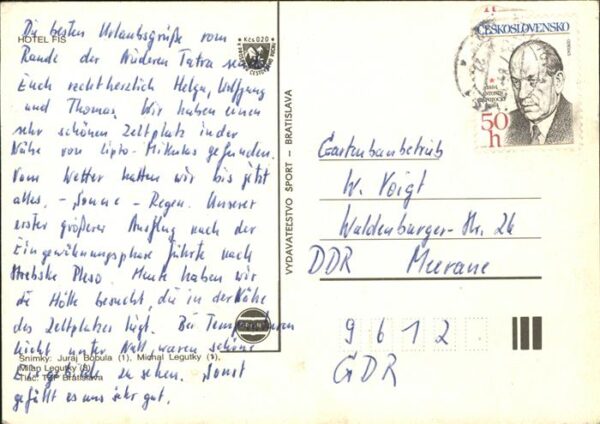 HOTEL FIS
Die besten Urlaubsgrüße vom
Rande der Niederen Tatra
Euch recht herzlich Helga, Wolfgang
und Thomas. Wir haben einen
sehr schönen Zeltplatz in der
Nähe von Lipto-Mikulas gefunden.
Vom Wetter hatten wir bis jetzt
alles. - Sonne - Regen. Unserer
erster größerer Ausflug nach der
Eingewöhnungsphase führte nach
Strbske Pleso. Heute haben wir
die Höhle besucht, die in der Nähe
des Zeltplatzes liegt. Bei Temperaturen
leicht unter Null waren schöne
Eisgebilde zu sehen. Sonst
gefällt es uns sehr gut.
Snímky: Juraj Bobula (1), Michal Legutky (1),
Milan Legutky (3)
Tlač: TSP Bratislava
Kčs 0,20
VYDAVATEĽSTVO ŠPORT – BRATISLAVA
ČESKOSLOVENSKO
ANTONÍN
ZÁPOTOCKÝ
50
h
Gartenbaubetrieb
W. Voigt
Waldenburger-Str. 26
DDR Meerane
9612
GDR